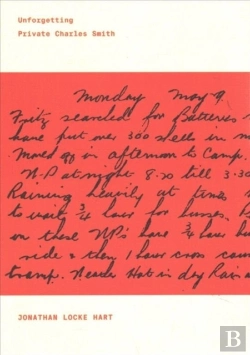 Unforgetting
Private Charles Smith
Monday May 9.
Fritz searched for Batteries
have put over 300 shells in m
Moved off in afternoon to Camp
N.P at night 8.30 till 3.30
Raining heavily at times
to wait 3/4 hour for busses.
on these NP's have 3/4 hour bu
ride & then 1 hour cross coun
tramp. Neade Hot in dry Rain
JONATHAN LOCKE HART
B